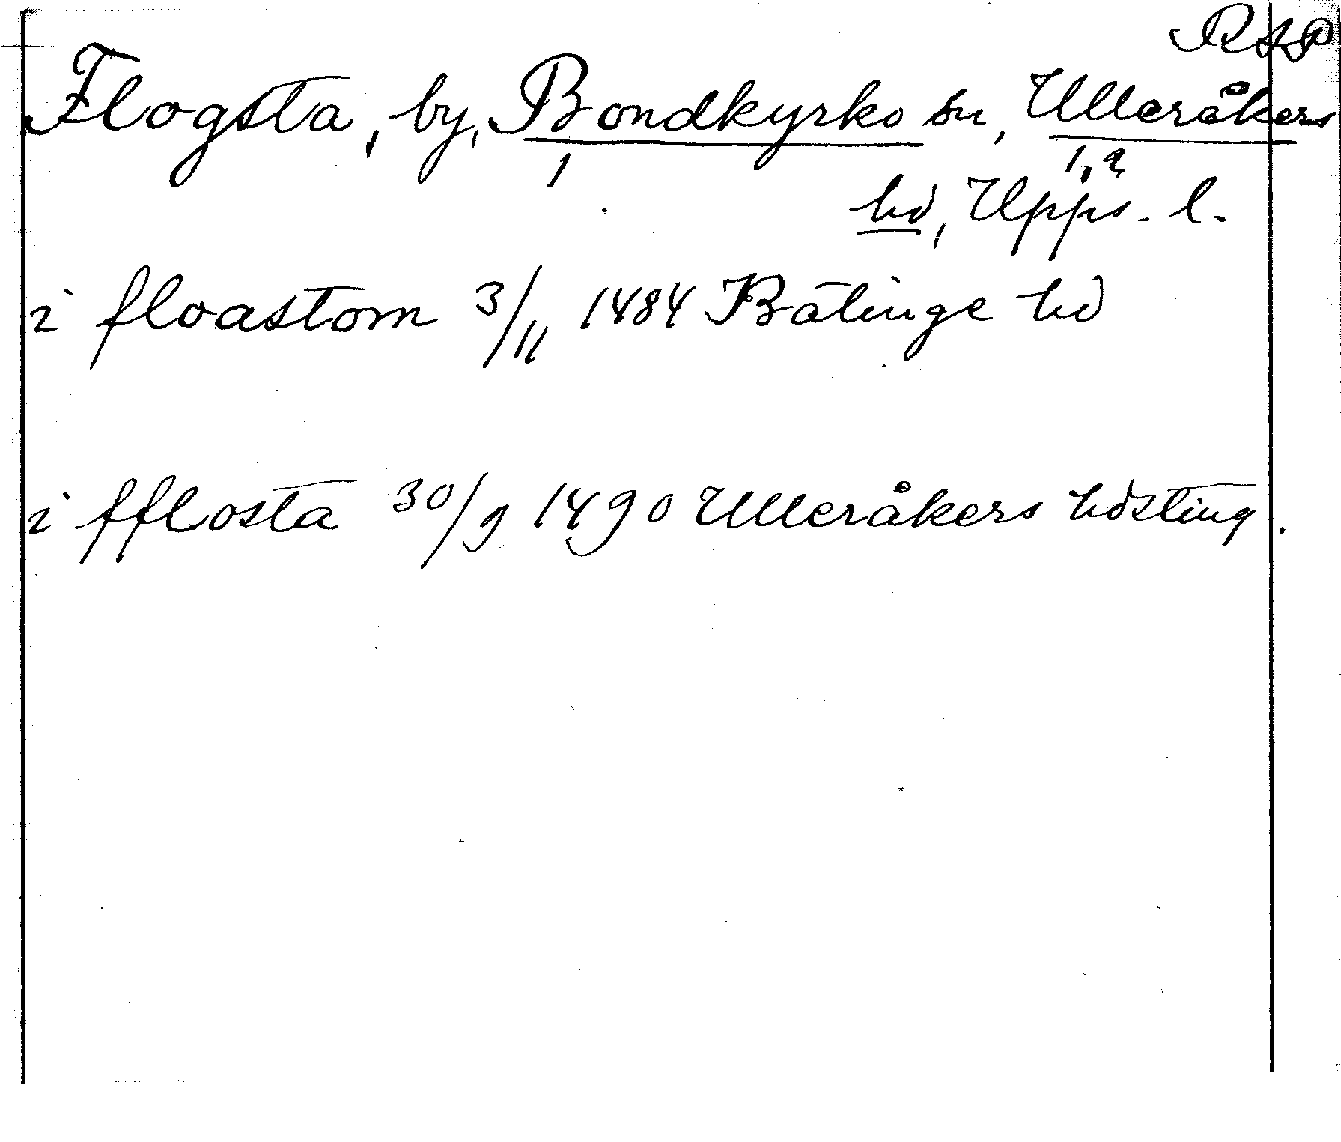 RAP
Flogsta, by, Bondkyrko sn, Ulleråkers
1 1,2
hd, Upps. l.
i floastom 3/11 1484 Bälinge hd
i fflosta 30/9 1490 Ulleråkers hdsting.